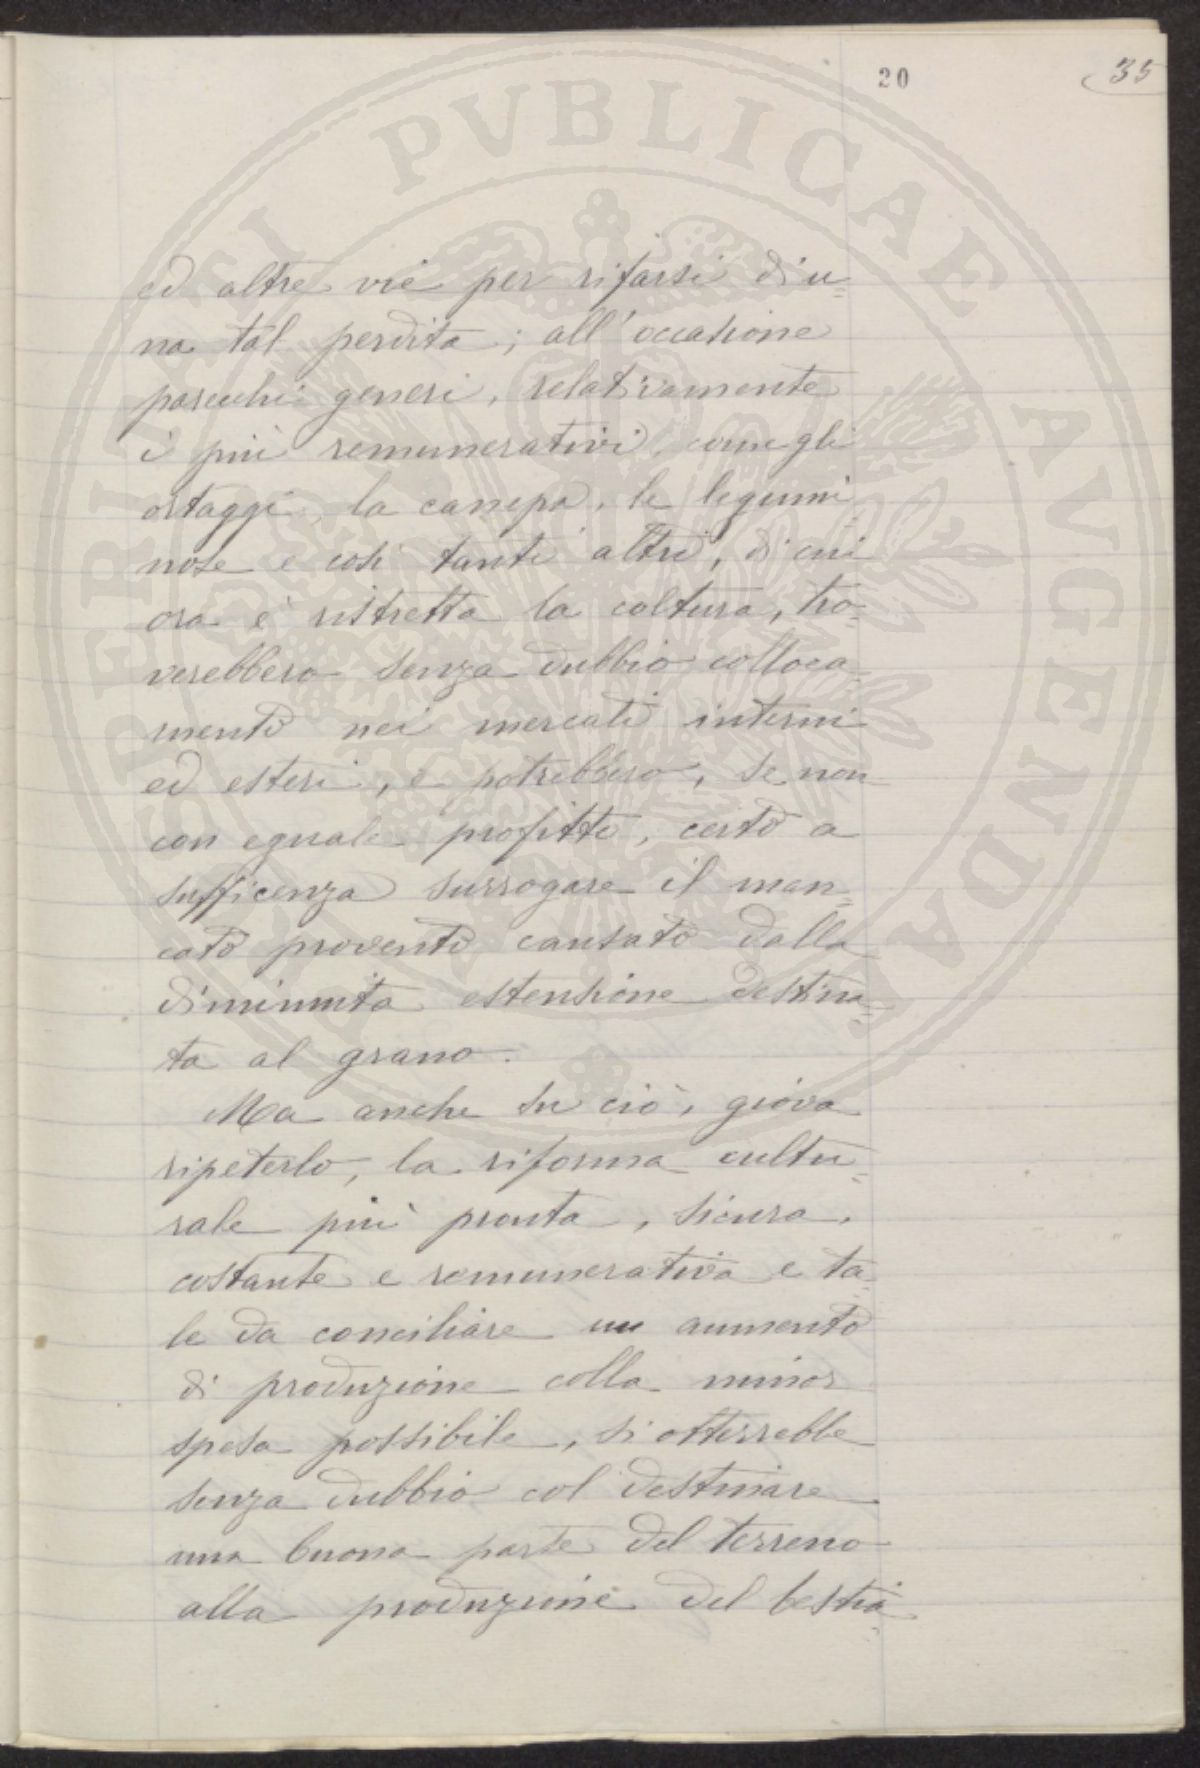 20
35
ed altre vie per rifarsi di u=
na tal perdita; all'occasione
parecchi generi, relativamente
i più remunerativi, come gli
ortaggi, la canepa, le legumi=
nose e così tanti altri, di cui
ora è ristretta la coltura, tro=
verebbero senza dubbio colloca=
mento nei mercati interni
ed esteri, e potrebbero, se non
con eguale profitto, certo a
sufficenza surrogare il man=
cato provento causato dalla
diminuita estensione destina=
ta al grano.
Ma anche su ciò, giova
ripeterlo, la riforma cultu=
rale più pronta, sicura,
costante e remunerativa e ta=
le da conciliare un aumento
di produzione colla minor
spesa possibile, si otterrebbe
senza dubbio col destinare
una buona parte del terreno
alla produzione del bestia=
SPERITATI PVBLICAE AVGENDAE